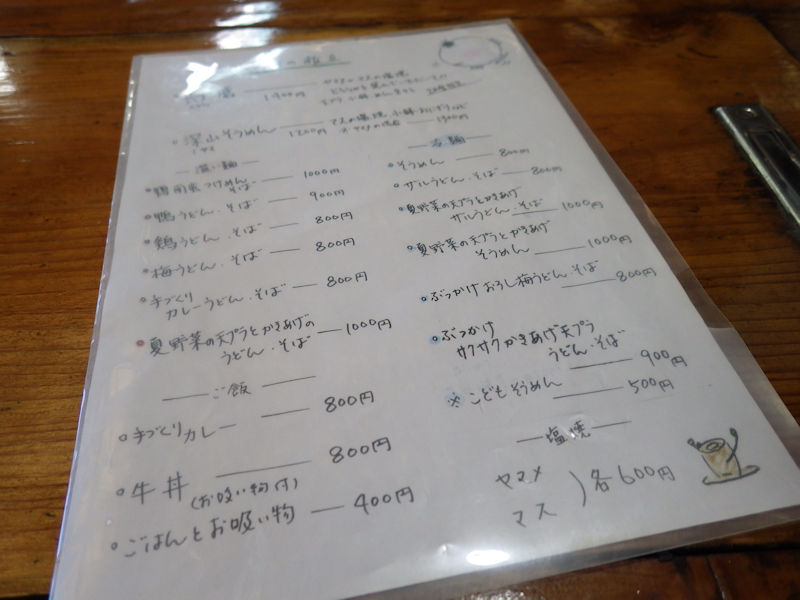 深山そうめん 1200円
温い麺
鴨南蛮つけめん そば 1000円
鴨うどん・そば 900円
鶏うどん・そば 800円
梅うどん・そば 800円
手づくり
カレーうどん・そば 800円
夏野菜の天プラとかきあげの
うどん・そば 1000円
ご飯
手づくりカレー 800円
牛丼 (お吸い物付) 800円
ごはんとお吸い物 400円
冷麺
そうめん 800円
ザルうどん・そば 800円
夏野菜の天プラとかきあげ
ザルうどん・そば 1000円
夏野菜の天プラとかきあげ
そうめん 1000円
ぶっかけおろし梅うどん・そば 800円
ぶっかけ
サクサクかきあげ天プラ
うどん・そば 900円
※こどもそうめん 500円
塩焼
ヤマメ
マス
)各600円